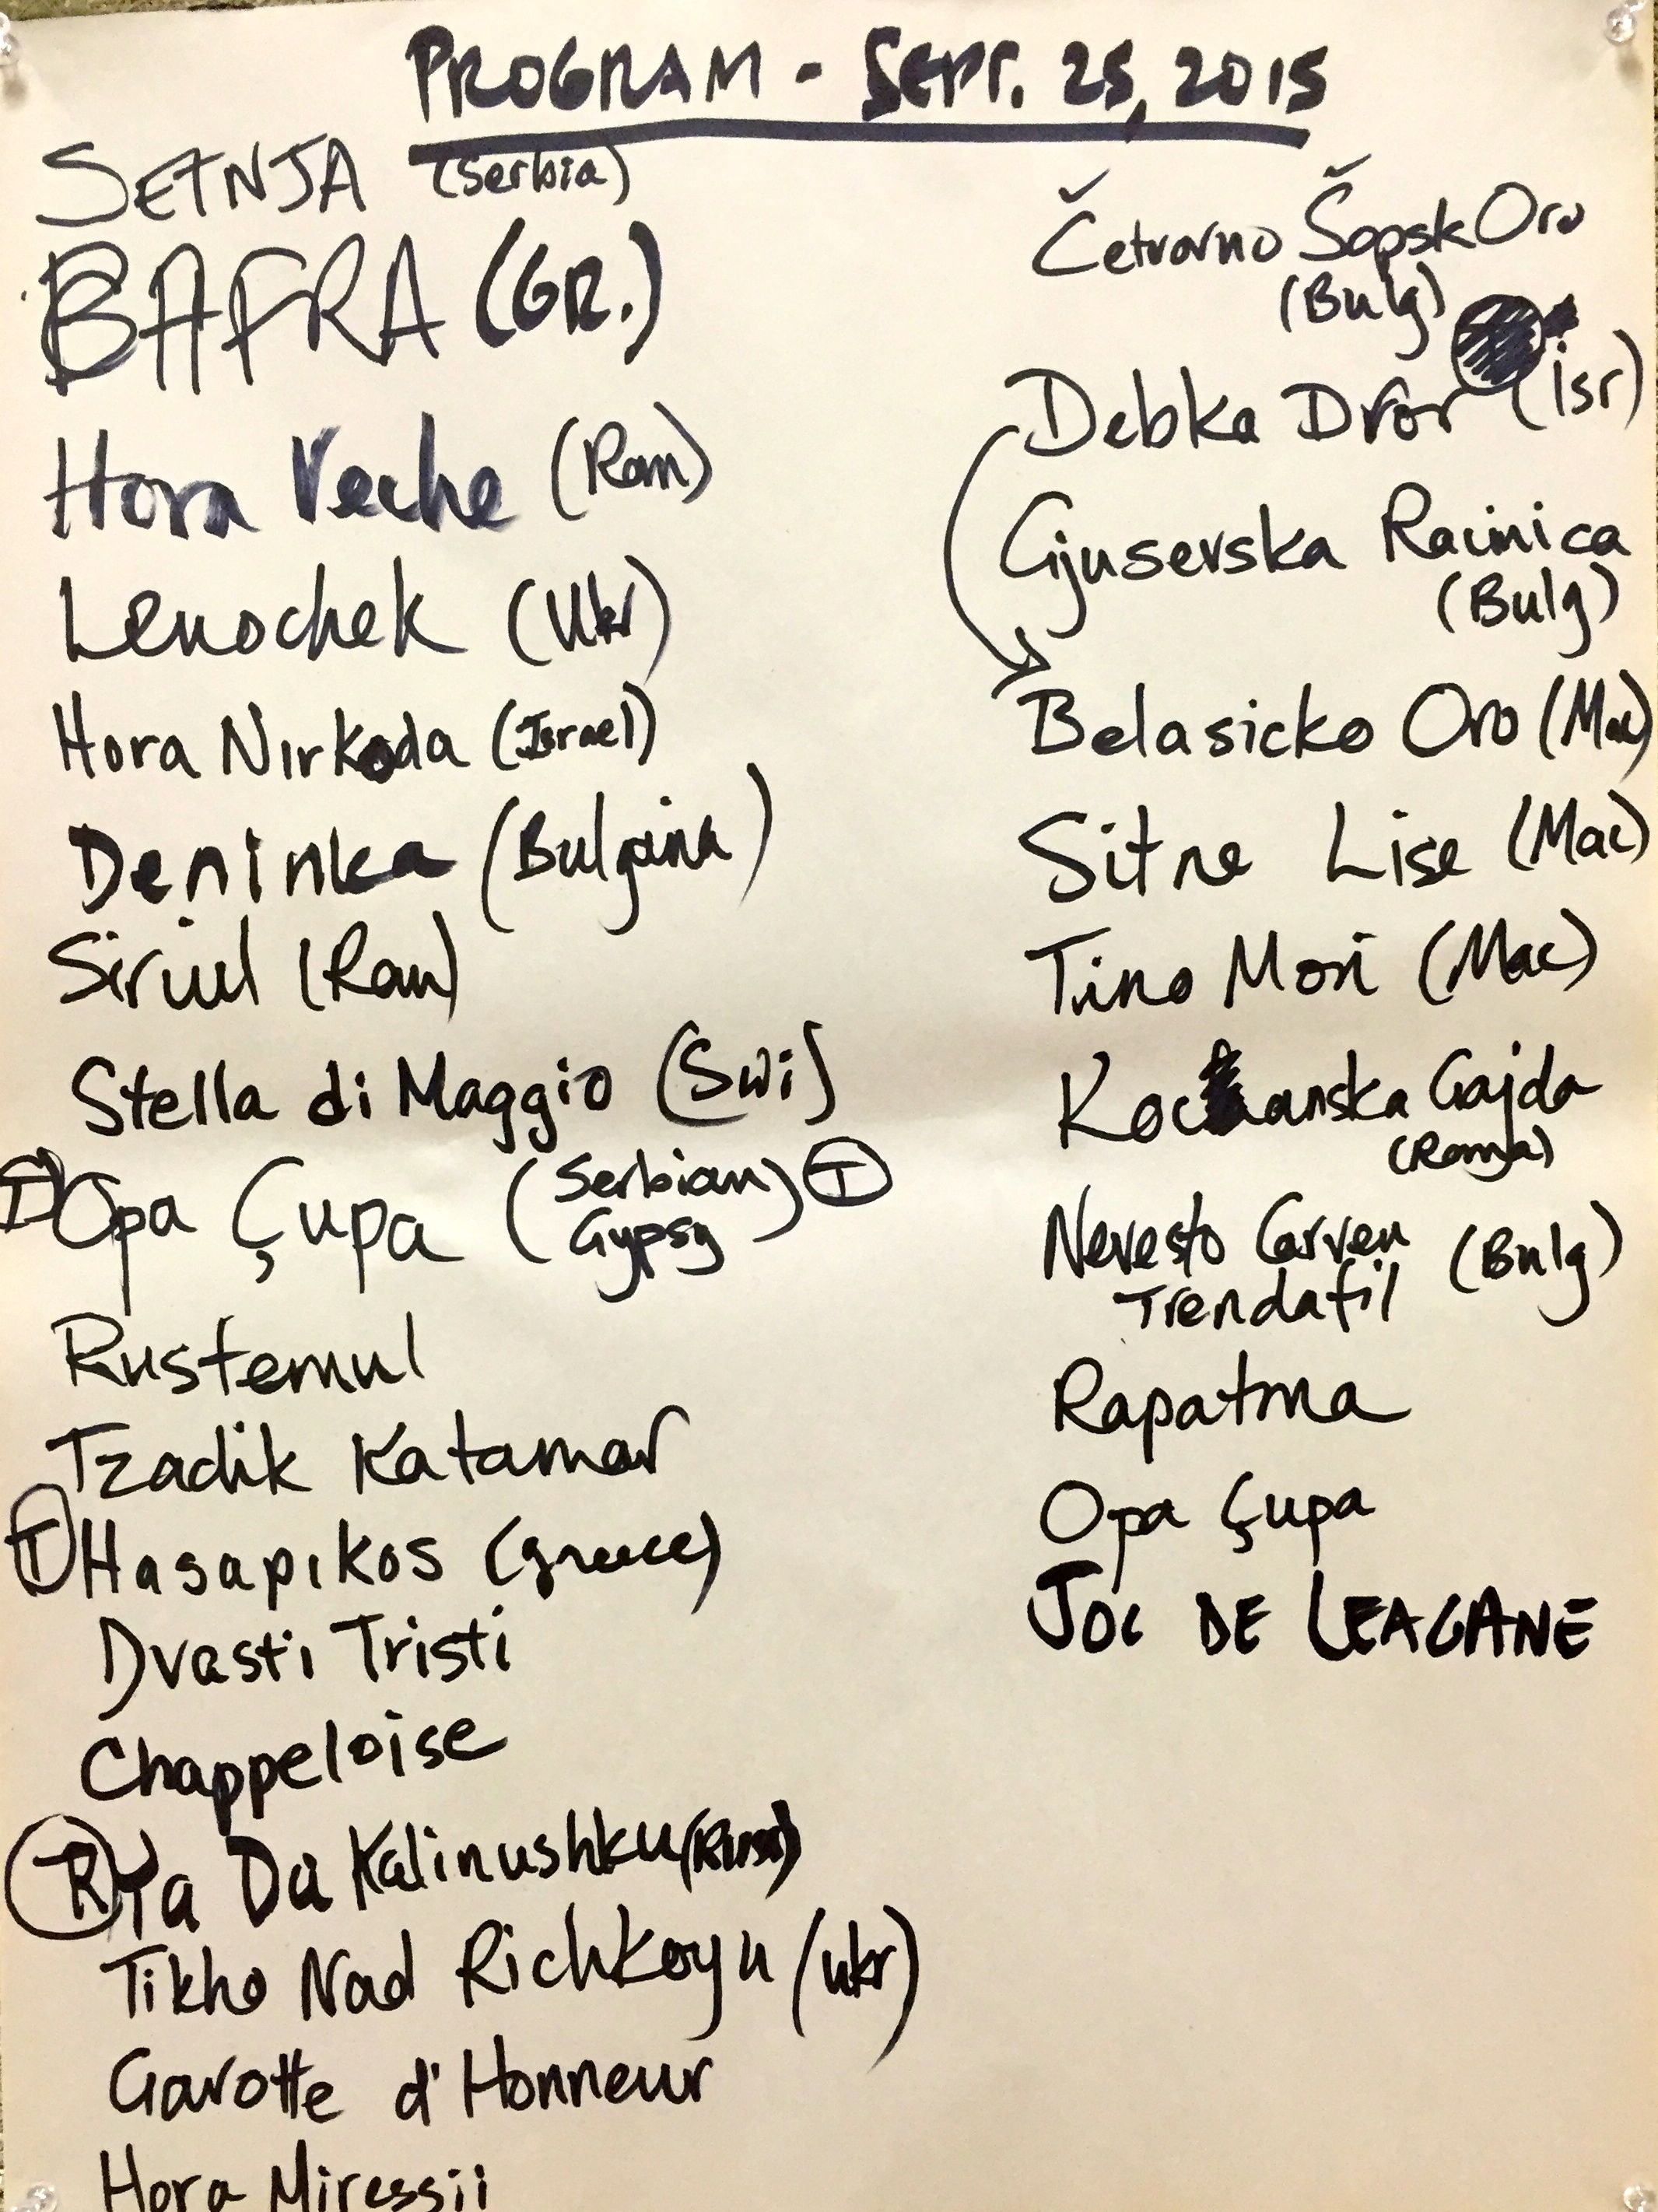 PROGRAM - SEPT. 25, 2015
SETNJA (Serbia)
BAFRA (GR.)
Hora Veche (Rom)
Lenochek (Ukr)
Hora Nirkoda (Israel)
Deninka (Bulgaria)
Siriul (Rom)
Stella di Maggio (Swi)
T Opa Çupa (Serbian Gypsy) T
Rustemul
Tzadik Katamar
T Hasapikos (greece)
Dvasti Tristi
Chappeloise
R Ya Da Kalinushku (Russ)
Tikho Nad Richkoyu (ukr)
Gavotte d'Honneur
Hora Miressii
Četvorno Šopsk Oro
(Bulg)
Debka Dror (isr)
Gjusevska Racinica
(Bulg)
Belasicko Oro (Mac)
Sitne Lise (Mac)
Tino Mori (Mac)
Kocanska Gajda
(Roma)
Nevesto Carven (Bulg)
Trendafil
Rapatma
Opa Çupa
JOC DE LEAGANE